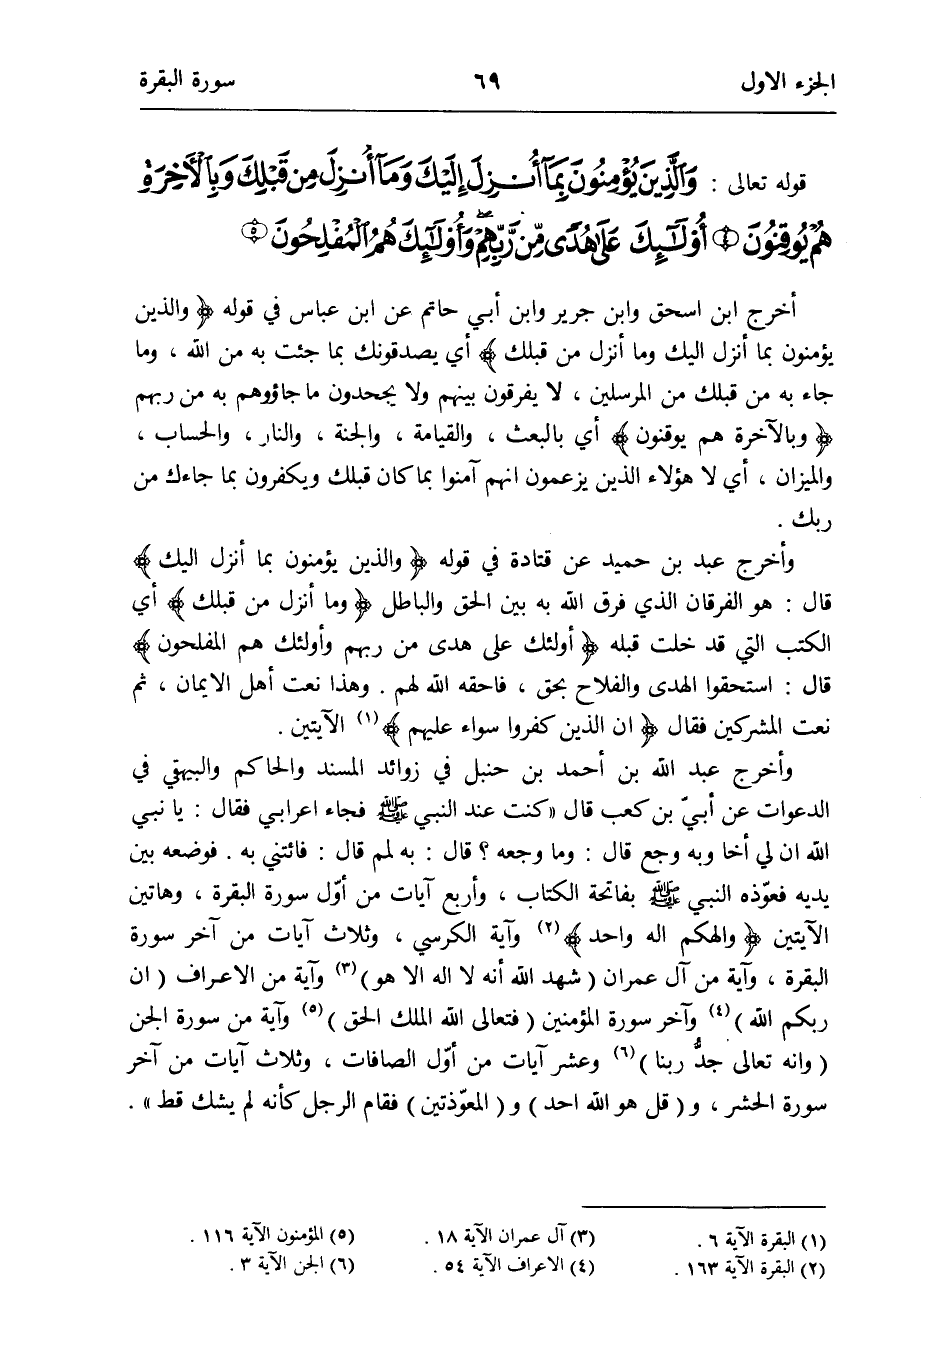 الجزء الاول ٦٩ سورة البقرة
قوله تعالى : وَالَّذِينَ يُؤْمِنُونَ بِمَا أُنزِلَ إِلَيْكَ وَمَا أُنزِلَ مِن قَبْلِكَ وَبِالْآخِرَةِ
هُمْ يُوقِنُونَ ﴿٤﴾ أُوْلَٰٓئِكَ عَلَىٰ هُدًى مِّن رَّبِّهِمْ وَأُوْلَٰٓئِكَ هُمُ الْمُفْلِحُونَ ﴿٥﴾
أخرج ابن اسحق وابن جرير وابن أبي حاتم عن ابن عباس في قوله ﴿ والذين
يؤمنون بما أنزل اليك وما أنزل من قبلك ﴾ أي يصدقونك بما جئت به من الله ، وما
جاء به من قبلك من المرسلين ، لا يفرقون بينهم ولا يجحدون ما جاؤوهم به من ربهم
﴿ وبالآخرة هم يوقنون ﴾ أي بالبعث ، والقيامة ، والجنة ، والنار ، والحساب ،
والميزان ، أي لا هؤلاء الذين يزعمون انهم آمنوا بما كان قبلك ويكفرون بما جاءك من
ربك .
وأخرج عبد بن حميد عن قتادة في قوله ﴿ والذين يؤمنون بما أنزل اليك ﴾
قال : هو الفرقان الذي فرق الله به بين الحق والباطل ﴿ وما أنزل من قبلك ﴾ أي
الكتب التي قد خلت قبله ﴿ أولئك على هدى من ربهم وأولئك هم المفلحون ﴾
قال : استحقوا الهدى والفلاح بحق ، فاحقه الله لهم . وهذا نعت أهل الايمان ، ثم
نعت المشركين فقال ﴿ ان الذين كفروا سواء عليهم ﴾ (١) الآيتين .
وأخرج عبد الله بن أحمد بن حنبل في زوائد المسند والحاكم والبيهقي في
الدعوات عن أبيّ بن كعب قال «كنت عند النبي ﷺ فجاء اعرابي فقال : يا نبي
الله ان لي أخا وبه وجع قال : وما وجعه ؟ قال : به لمم قال : فائتني به . فوضعه بين
يديه فعوّذه النبي ﷺ بفاتحة الكتاب ، وأربع آيات من أوّل سورة البقرة ، وهاتين
الآيتين ﴿ والهكم اله واحد ﴾ (٢) وآية الكرسي ، وثلاث آيات من آخر سورة
البقرة ، وآية من آل عمران ( شهد الله أنه لا اله الا هو ) (٣) وآية من الاعراف ( ان
ربكم الله ) (٤) وآخر سورة المؤمنين ( فتعالى الله الملك الحق ) (٥) وآية من سورة الجن
( وانه تعالى جدُّ ربنا ) (٦) وعشر آيات من أوّل الصافات ، وثلاث آيات من آخر
سورة الحشر ، و ( قل هو الله احد ) و ( المعوّذتين ) فقام الرجل كأنه لم يشك قط » .
(١) البقرة الآية ٦ . (٣) آل عمران الآية ١٨ . (٥) المؤمنون الآية ١١٦ .
(٢) البقرة الآية ١٦٣ . (٤) الاعراف الآية ٥٤ . (٦) الجن الآية ٣ .